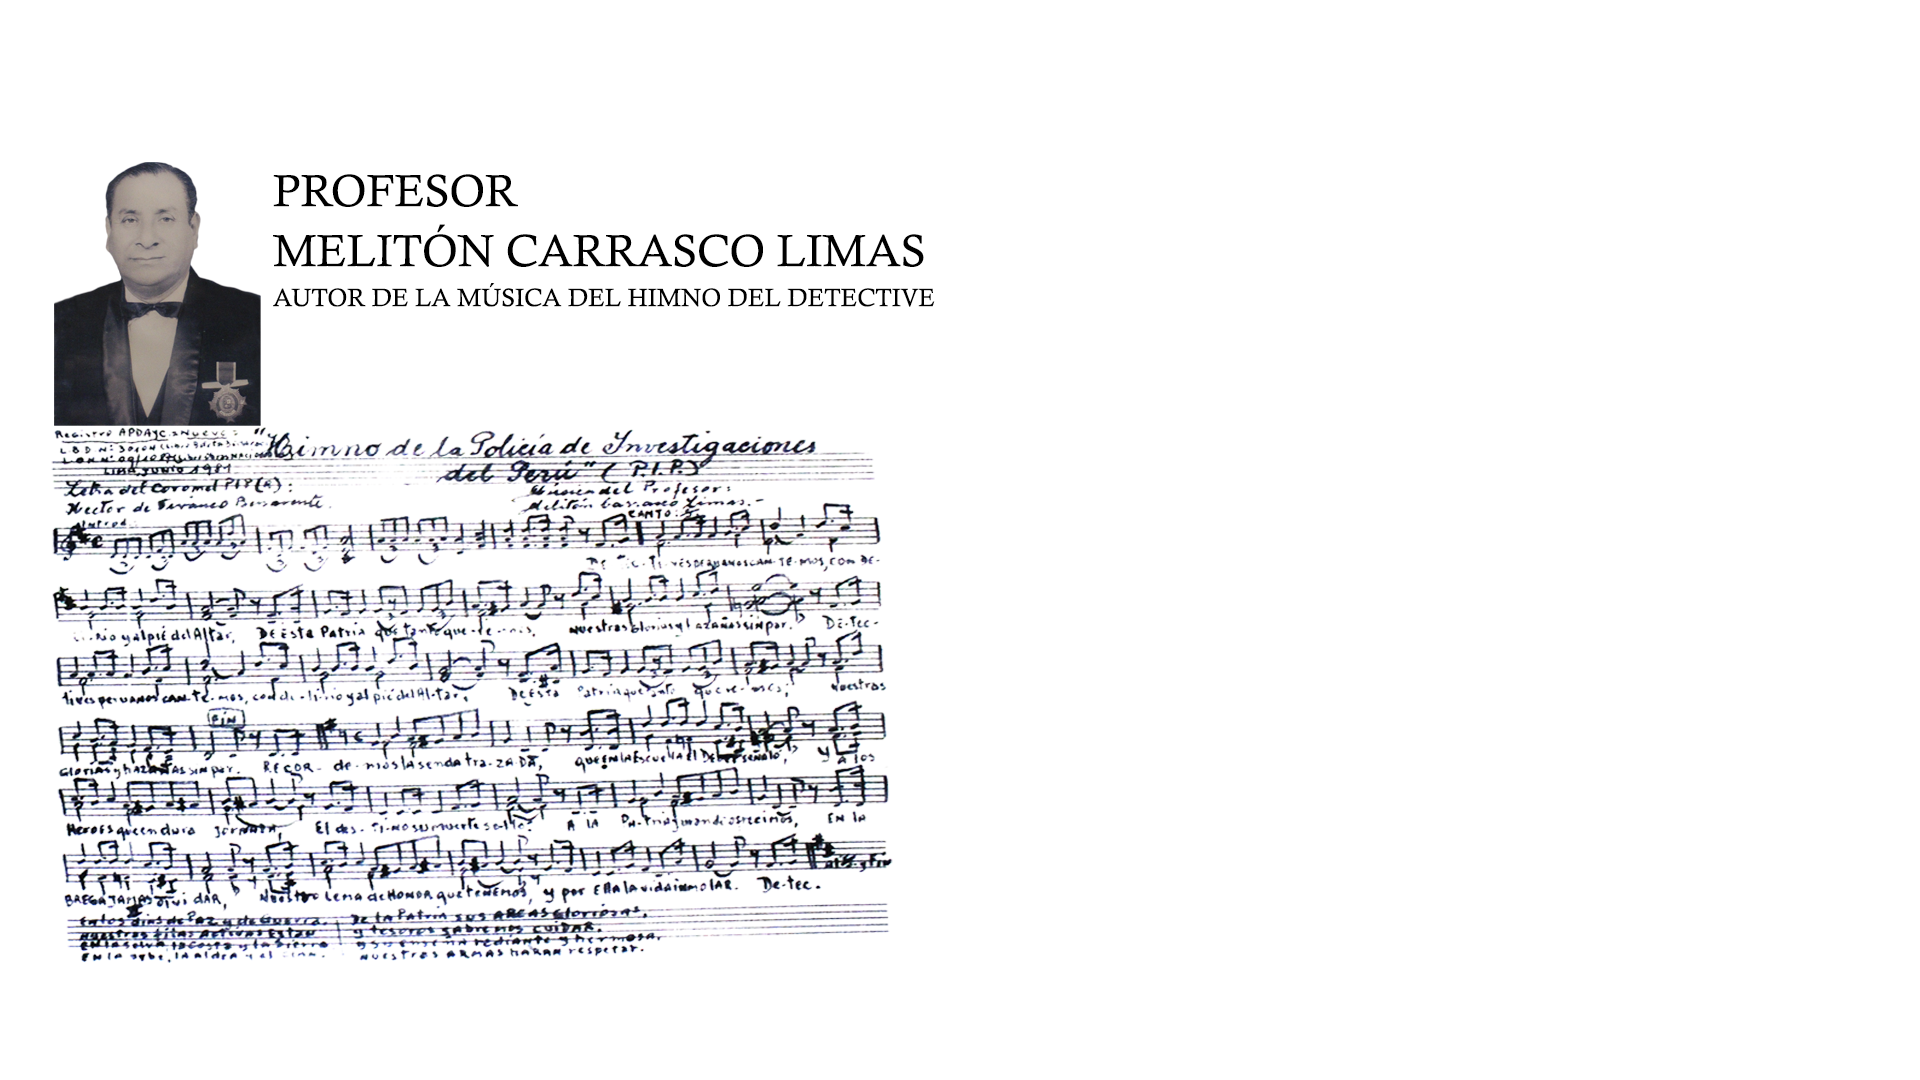 PROFESOR
MELITÓN CARRASCO LIMAS
AUTOR DE LA MÚSICA DEL HIMNO DEL DETECTIVE
Registro APDAYC
LIMA, JUNIO 1981
"Himno de la Policía de Investigaciones
del Perú" (P.I.P.)
Letra del Coronel PIP (a):
Hector de
Música del Profesor:
Melitón Carrasco Limas.-
CANTO:
CAN-TE-MOS, CON DE-
y al pié del Altar, DE ESta Patria que tanto que-re-mos, NUEStras Glorias y hazañas sin par. DE-Tec-
tives peruanos CAN-TE-mos, con de-li-rio y al pié del Al-tar, DE ESta Patria que tanto quere-mos, Nuestras
FIN
Glorias y hazañas sin par. RECOR-de-mos la senda tra-za-DA, que EN la Escuela El Deber señaló, y A los
HEROES que en dura JORNADA, El des-ti-no su muerte se-lló. A lA Pa-tria EN la
BREGA JAMAS olvi DAR, NUEstro Lema de HONOR que tENEMOS, y por Ella la vida inmolar. De-tec.
EN los días de PAZ y de Guerra DE LA PATRIA SUS ARCAS GLORIOSAS,
nuestras filas Activas Están y tesoros SABREMOS CUIDAR.
EN la selva, la costa y la Sierra y su enseña radiante y hermosa,
EN la urbe, lA Aldea y el NUEStras ARMAS HARAN respetar.